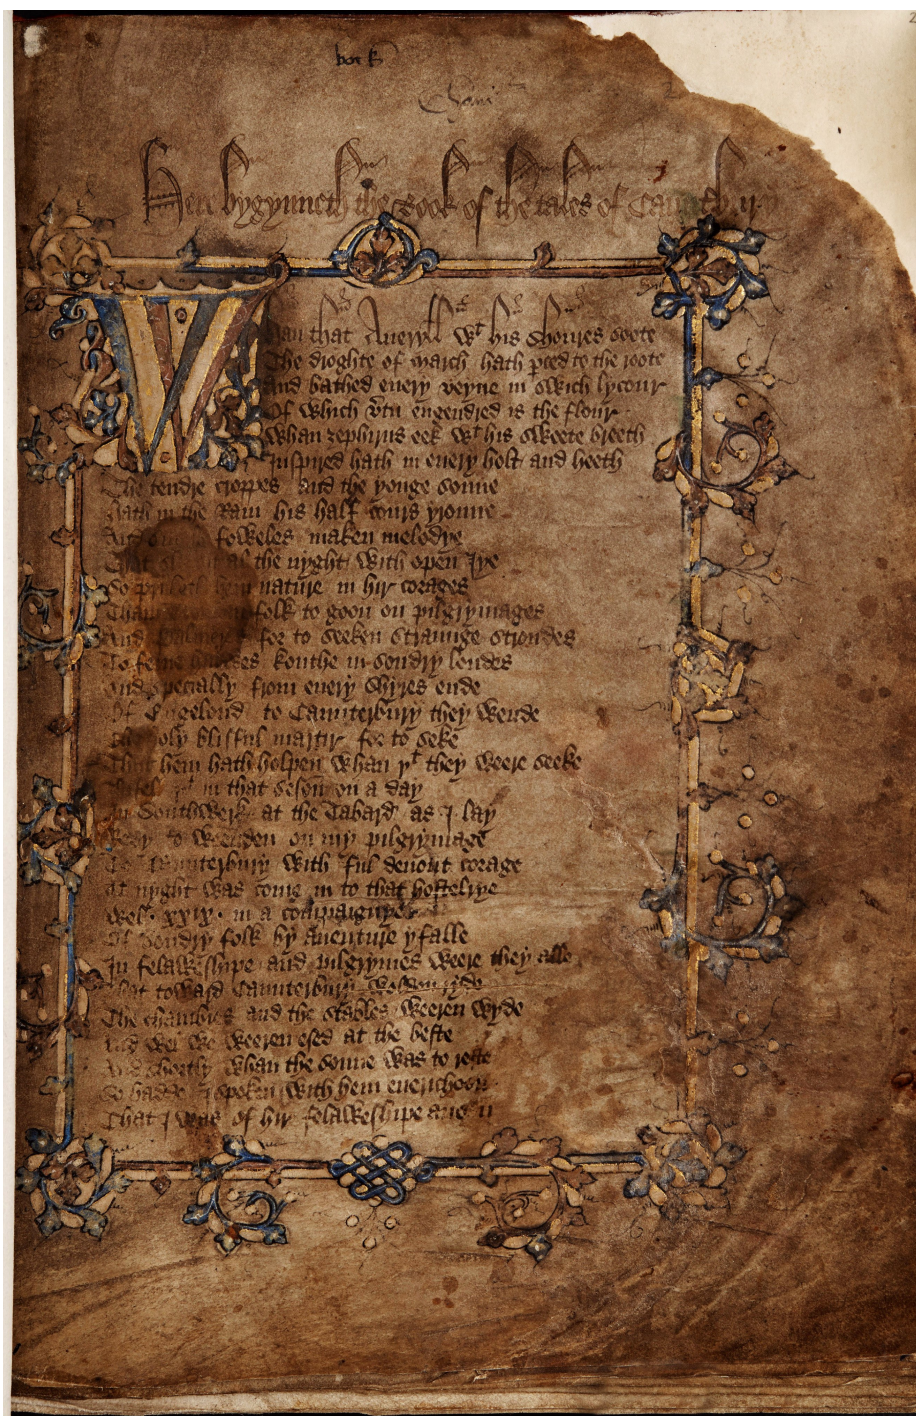 Here bygynneth the Book of the tales of Caunterbury
Whan that Aueryll wt his shoures soote
The droghte of march hath pced to the roote
And bathed euery veyne in swich lycour
Of which vtu engendred is the flour
Whan zephirus eek wt his sweete breeth
Inspired hath in euery holt and heeth
The tendre croppes and the yonge sonne
hath in the Ram his half cours yronne
And foweles maken melodye
That al the nyght with open Iye
So priketh hem nature in hir corages
folk to goon on pilgrymages
And Palmeres for to seeken straunge strondes
To ferne halwes kouthe in sondry londes
And specially from euery shyres ende
Of Engelond to Caunterbury they wende
The holy blisful martir for to seke
That hem hath holpen whan yt they weere seeke
in that seson on a day
In Southwerk at the Tabard as I lay
Redy to weenden on my pilgrymage
To Caunterbury with ful deuout corage
At nyght was come in to that hostelrye
wel .xxix. in a compaignye
Of sondry folk by auenture yfalle
In felaweshipe and pilgrymes weere they alle
That toward Caunterbury wolden ryde
The chambres and the stables weeren wyde
And wel we weeren esed at the beste
And shortly whan the sonne was to reste
So hadde I spoken with hem euerichoon
That I was of hir felaweshipe anon